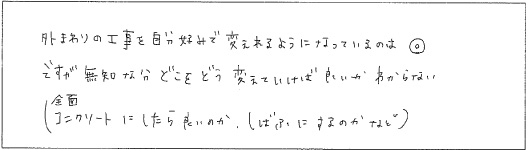 外まわりの工事を自分好みで変えれるようになっているのは ◎
ですが無知な分どこをどう変えていけば良いかわからない
(全面コンクリートにしたら良いのか、しばふにするのかなど)